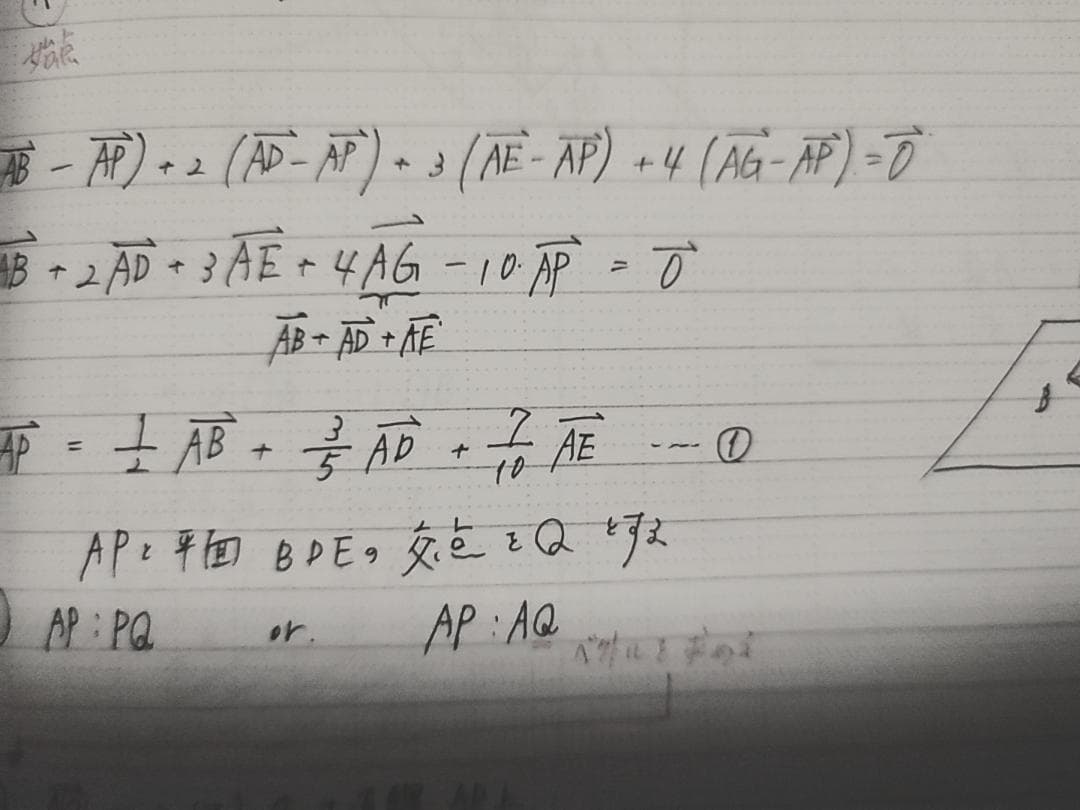 始点
AB - AP) + 2 (AD - AP) + 3 (AE - AP) + 4 (AG - AP) = 0
AB + 2AD + 3AE + 4AG - 10・AP = 0
AB + AD + AE
AP = 1/2 AB + 3/5 AD + 7/10 AE ---- ①
B
APと平面 BDEの交点をQとする
AP : PQ or. AP : AQ
ベクトルを求める